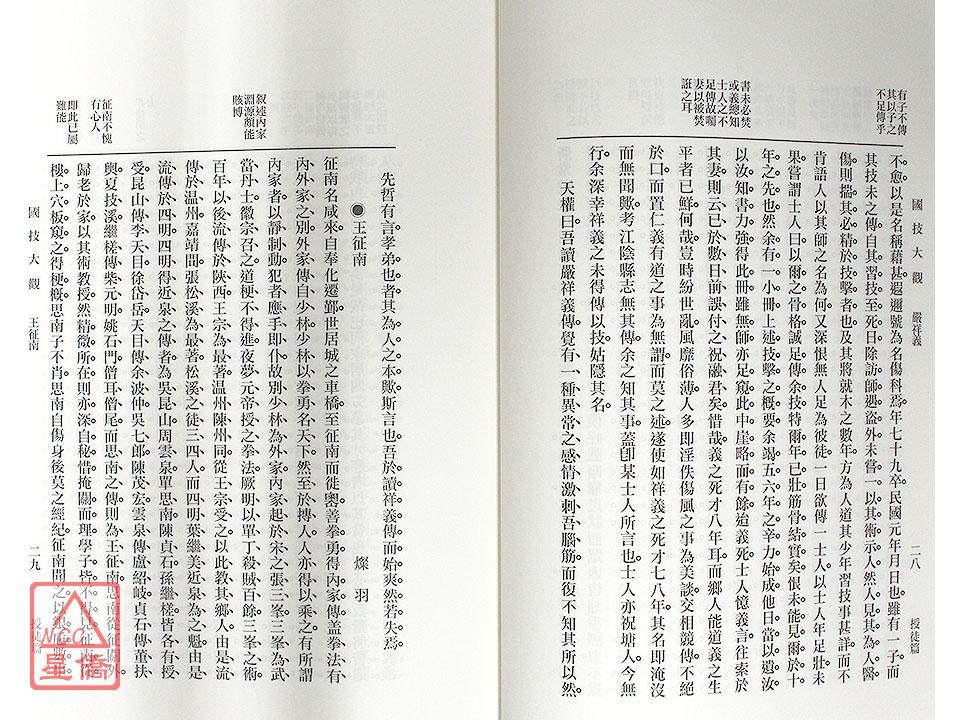 國技大觀 嚴祥義 二八 授徒篇
有子不傳
其以子之
不足傳乎
書未必焚
或義總知
士人之不
足傳故囑
妻以被焚
誑之耳
不愈以是名稱藉甚遐邇號為名傷科焉年七十九卒民國元年月日也雖有一子而
其技未之傳自其習技至死日除訪師遇盜外未嘗一以其術示人然人見其為人醫
傷則揣其必精於技擊者也及其將就木之數年方為人道其少年習技事甚詳而不
肯語人以其師之名為何又深恨無人足為彼徒一日欲傳一士人以士人年足壯未
果嘗謂士人曰以爾之骨格誠足傳余技特爾年已壯筋骨結實矣恨未能見爾於十
年之先也然余有一小冊上述技擊之概要余竭五六年之辛力始成他日當以遺汝
以汝知書力強得此冊雖無師亦足窺此中崖略而有餘迨義死士人憶義言往索於
其妻則云已於數日前誤付之祝融君矣惜哉義之死才八年耳而鄉人能道義之生
平者已鮮何哉豈時紛世亂風靡俗薄人多即淫佚傷風之事為美談交相競傳不絕
於口而置仁義有道之事為無謂而莫之述遂使如祥義之死才七八年其名即淹沒
而無聞歟考江陰縣志無其傳余之知其事蓋即某士人所言也士人亦祝塘人今無
行余深幸祥義之未得傳以技姑隱其名
天權曰吾讀嚴祥義傳覺有一種異常之感情激刺吾腦筋而復不知其所以然
先哲有言孝弟也者其為人之本歟斯言也吾於讀祥義傳而始爽然若失焉
●王征南 燦羽
征南名咸來自奉化遷鄞世居城之車橋至征南而徙嶴善拳勇得內家傳蓋拳法有
內外家之別外家傳自少林少林以拳勇名天下然至於搏人人亦得以乘之有所謂
內家者以靜制動犯者應手即仆故別少林為外家內家起於宋之張三峯三峯為武
當丹士徽宗召之道梗不得進夜夢元帝授之拳法厥明以單丁殺賊百餘三峯之術
百年以後流傳於陝西王宗為最著溫州陳州同從王宗受之以此教其鄉人由是流
傳於溫州嘉靖間張松溪為最著松溪之徒三四人而四明葉繼美近泉為之魁由是
流傳於四明四明得近泉之傳者為吳昆山周雲泉單思南陳貞石孫繼槎皆各有授
受昆山傳李天目徐岱岳天目傳余波仲吳七郎陳茂宏雲泉傳盧紹岐貞石傳董扶
輿夏技溪繼槎傳柴元明姚石門僧耳僧尾而思南之傳則為王征南思南從征關外
歸老於家以其術教授然精微所在則亦深自秘惜掩關而理學子皆不得見征南從
樓上穴板窺之得梗概思南子不肖思南自傷身後莫之經紀征南聞之以銀
敍述內家
淵源頗能
賅博
征南不愧
有心人
即此已屬
難能
國技大觀 王征南 二九 授徒篇
NCC
星僑